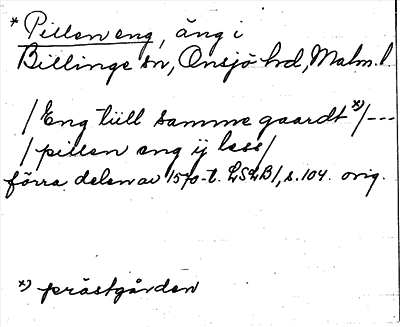 * Pillen eng, äng i
Billinge sn, Onsjö hd, Malm. l.
/Eng tiill samme gaardt x)/---
/pillen eng ij less/
förra delen av 1570-t. LSLB/, s. 104. orig.
x) prästgården